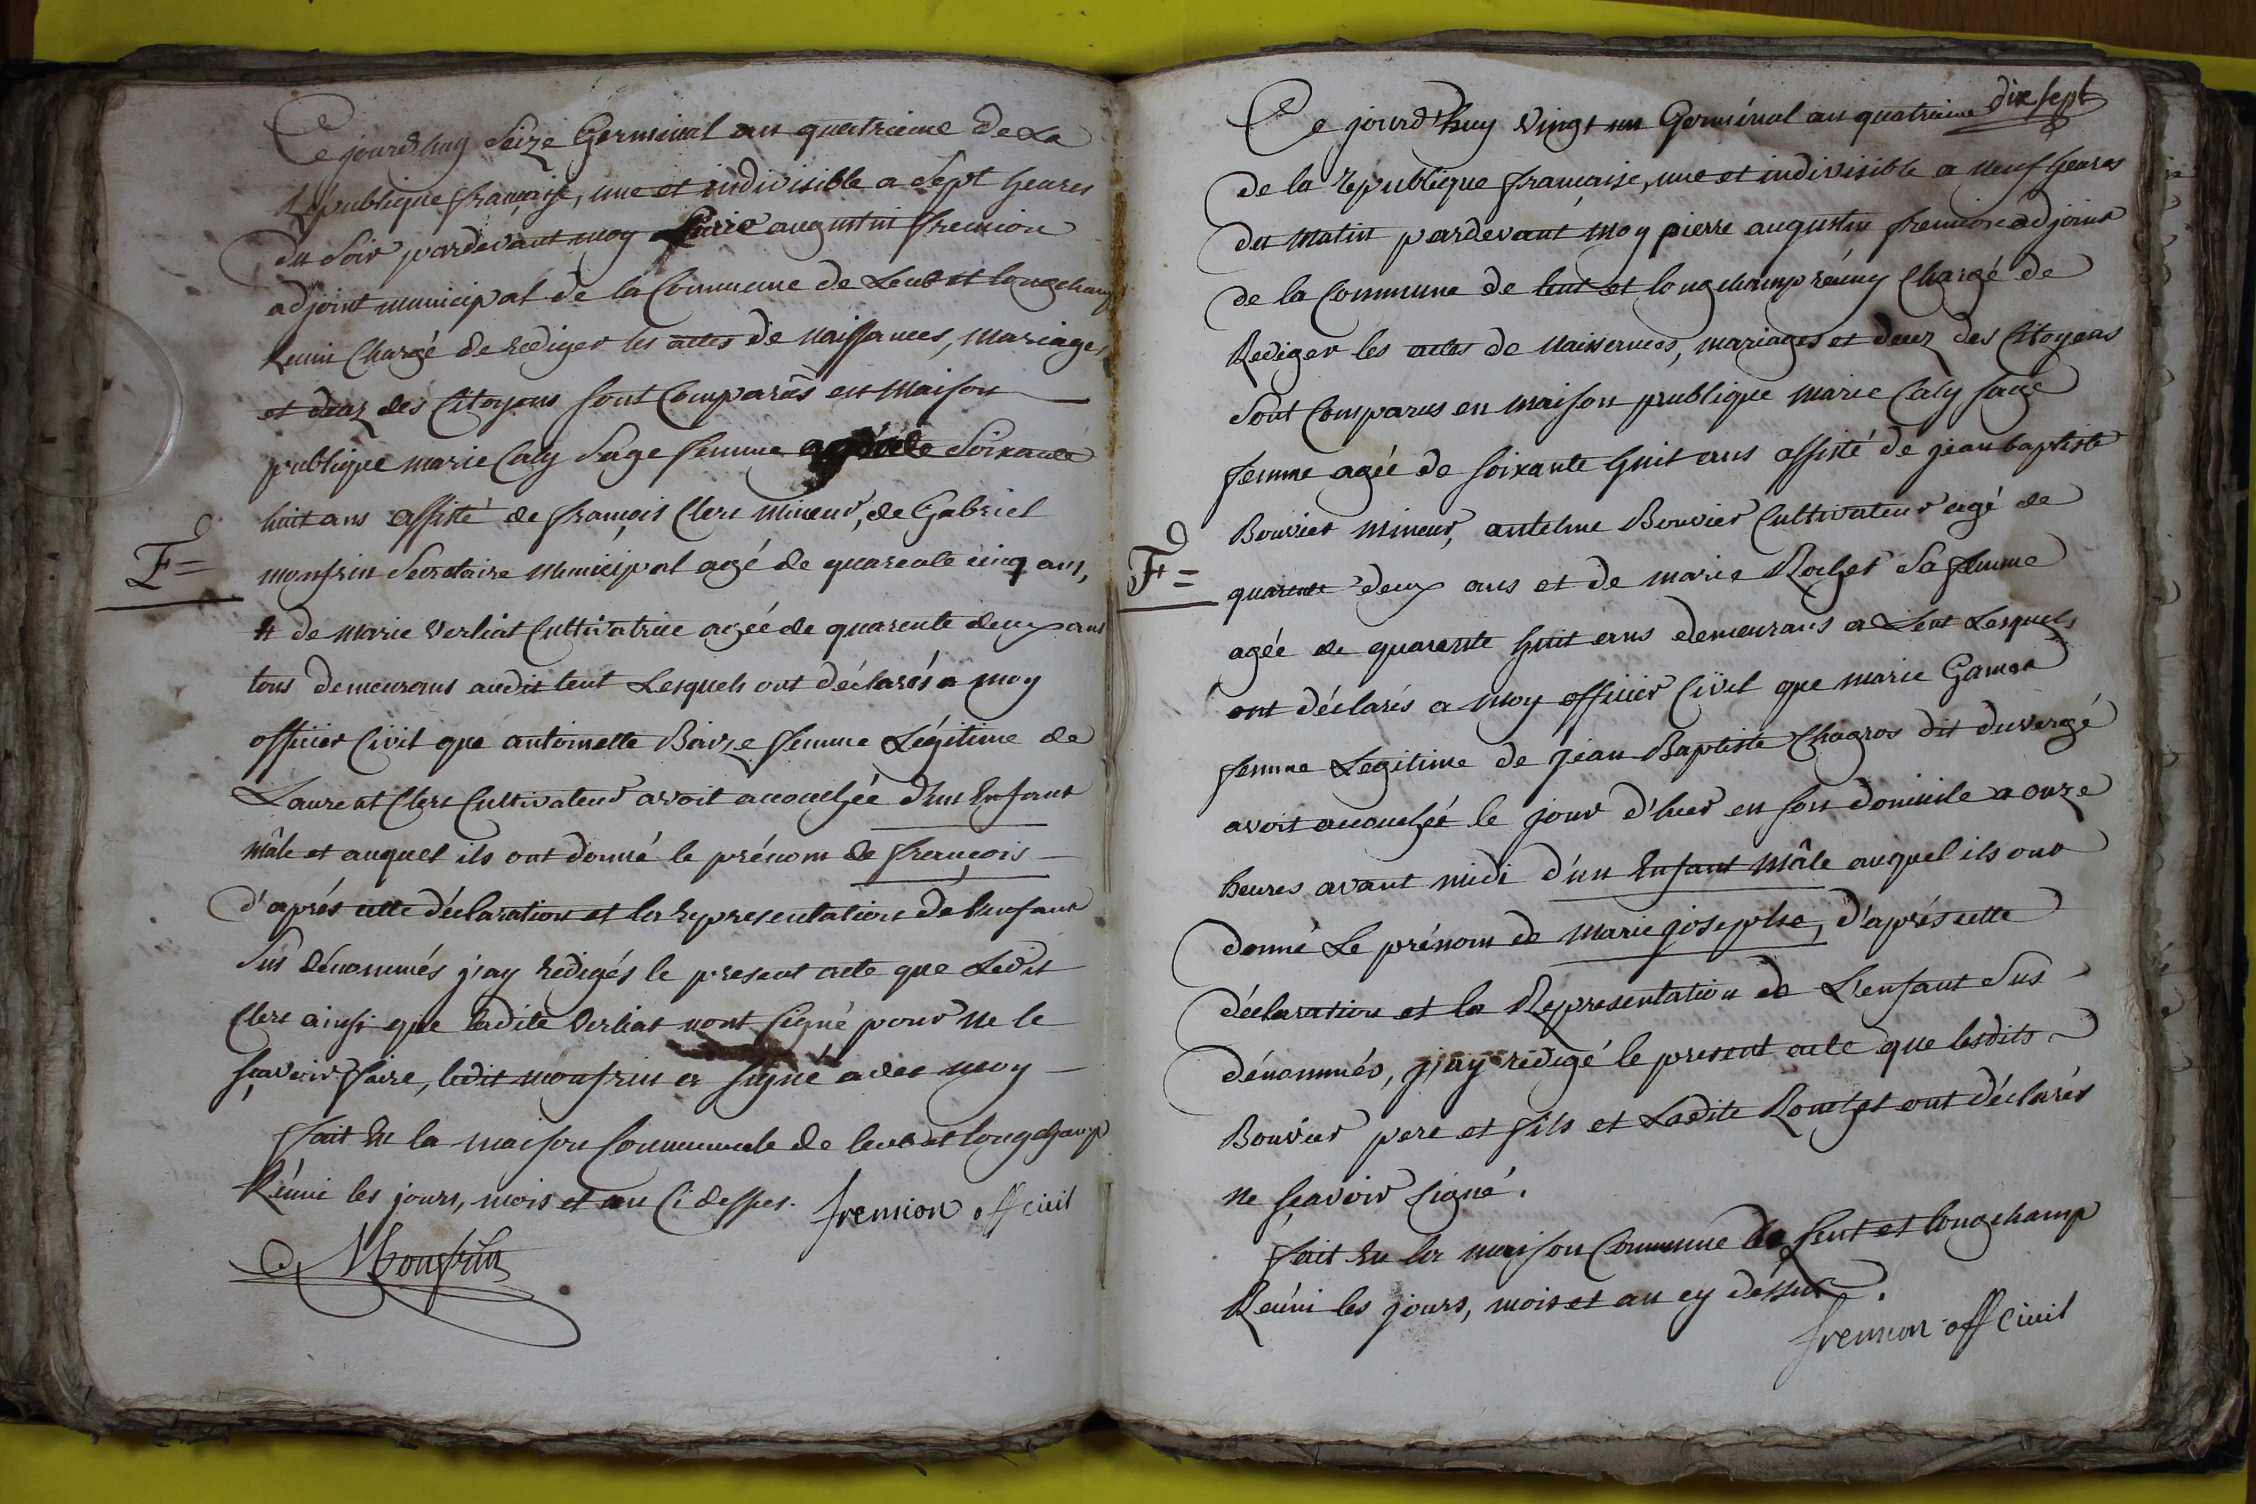 Ce jourd'huy Seize Germinal an quatrieme de La
Republique française, une et indivisible a Sept heures
du Soir pardevant moy Pierre augustin fremion
adjoint municipal de la Commune de Lent et longchamp
Reuni Chargé de rediger les actes de Naissances, mariages
et decez des Citoyens sont Comparûs en Maison
publique marie Caly Sage femme agée de Soixante
huit ans assisté de françois Clerc mineur, de Gabriel
F= monfrin Secretaire Municipal agé de quarente cinq ans,
et de marie Verliat Cultivatrice agée de quarente deux ans
tous demeurans audit lent Lesquels ont déclarés a moy
officier Civil que antoinette Boivze femme Légitime de
Laurent Clerc Cultivateur avoit accouchée d'un Enfant
mâle et auquel ils ont donné le prénom de françois
d'aprés cette déclaration et la representation de l'enfant
Sus dénommés j'ay redigés le present acte que Ledit
Clerc ainsi que ladite Verliat n'ont Signé pour ne le
sçavoir faire, ledit monfrin a signé avec moy
fait En la maison Communale de lent et longchamp
Réuni les jours, mois et an Ci dessus. fremion off civil
Monfrin
dix sept
Ce jourd'huy Vingt un Germinal an quatrieme
de la republique française, une et indivisible a neuf heures
du Matin pardevant moy pierre augustin fremion adjoint
de la Commune de lent et longchamp réuny Chargé de
Rediger les actes de Naissances, mariages et decez des Citoyens
Sont Comparus en maison publique marie Caly sage
femme agée de soixante huit ans assisté de jean baptiste
Bouvier mineur, antelme Bouvier Cultivateur agé de
F= quarente deux ans et de marie Rochet Sa femme
agée de quarente huit ans demeurans a Lent Lesquels
ont déclarés a moy officier Civil que marie Gamet
femme Legitime de jean Baptiste Chagros dit duvergé
avoit accouchée le jour d'hier en son domicile a onze
heures avant midi d'un Enfant Mâle auquel ils ont
donné Le prénom de marie josephe, d'aprés cette
déclaration et la Representation de L'enfant Sus
dénommés, j'ay redigé le present acte que lesdits
Bouvier pere et fils et Ladite Rouchet ont déclarés
ne sçavoir signé.
fait En la maison Commune de Lent et longchamp
Reúni les jours, mois et an cy dessus.
fremion off civil